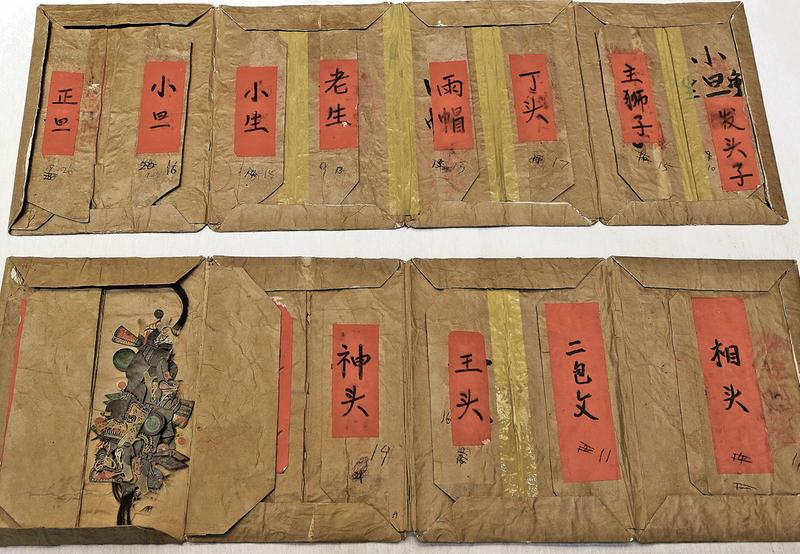 正旦
小旦
16
小生
老生
雨帽
丁头
17
主狮子
小旦
发头子
神头
19
王头
16
二包文
11
相头